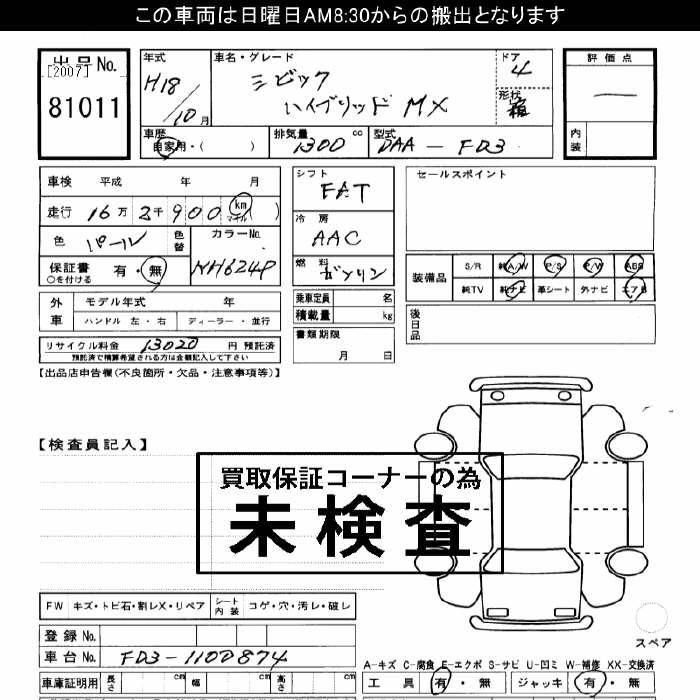 この車両は日曜日AM8:30からの搬出となります
出品No.
[2007]
81011
年式
H18/10月
車名・グレード
シビック
ハイブリッド MX
ドア
4
形状
箱
評価点
―
内装
車歴
自家用・( )
排気量
1300 cc
型式
DAA-FD3
車検 平成 年 月
走行 16万2千900 km マイル ( )
色 パール
色替
カラーNo.
NH624P
保証書 有・無
○を付ける
シフト
FAT
冷房
AAC
燃料
ガソリン
セールスポイント
装備品
S/R 純A/W P/S P/W ABS
純TV 純ナビ 革シート 外ナビ エアB
外車
モデル年式 年
ハンドル 左・右 ディーラー・並行
乗車定員 名
積載量 kg
後日品
リサイクル料金 13020 円 預託済
預託済で精算希望される方は金額記入して下さい
書類期限
月 日
【出品店申告欄(不良箇所・欠品・注意事項等)】
【検査員記入】
買取保証コーナーの為
未検査
FW キズ・トビ石・割レX・リペア
シート内装 コゲ・穴・汚レ・破レ
スペア
登録No.
車台No. FD3-1100874
A-キズ C-腐食 E-エクボ S-サビ U-凹ミ W-補修 XX-交換済
車庫証明用 長さ cm 幅 cm 高さ cm
工具 有・無 ジャッキ 有・無